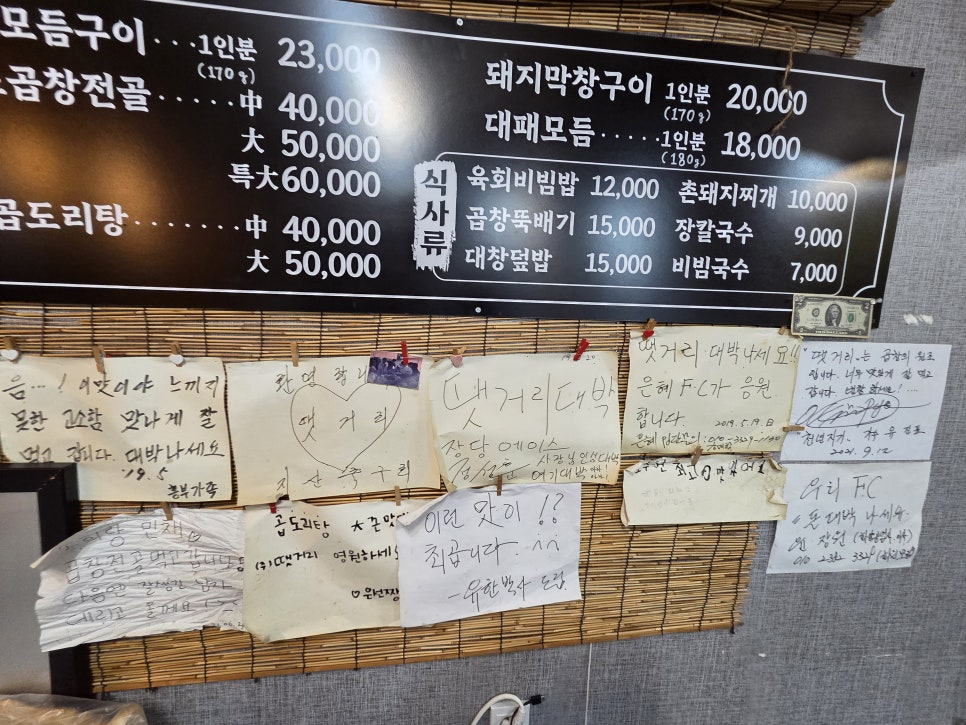 모듬구이 ··· 1인분 23,000
(170g)
곱창전골 ······ 中 40,000
大 50,000
특大 60,000
곱도리탕 ········ 中 40,000
大 50,000
돼지막창구이 1인분 20,000
(170g)
대패모듬 ····· 1인분 18,000
(180g)
식사류
육회비빔밥 12,000
곱창뚝배기 15,000
대창덮밥 15,000
촌돼지찌개 10,000
장칼국수 9,000
비빔국수 7,000
음...! 이맛이야 느끼지
못한 고소함 맛나게 잘
먹고 갑니다. 대박나세요
19.5
흥부가족
환영합니
땟거리
지산 족구회
땟거리 대박
장당 에이스
여기 대박
땟거리 대박나세요!!
은혜 FC가 응원
합니다.
2019.5.19.日
땟거리는 곱창의 원조
입니다. 너무 맛있게 잘 먹고
갑니다.
2021. 9. 12
우리 F.C
대박 나세요
곱창전골먹고갑니다
다음엔
데리고 올께요
곱도리탕 ★존맛
(주)땟거리 영원하세
이런 맛이 !?
최곱니다.
-유한박사 드림